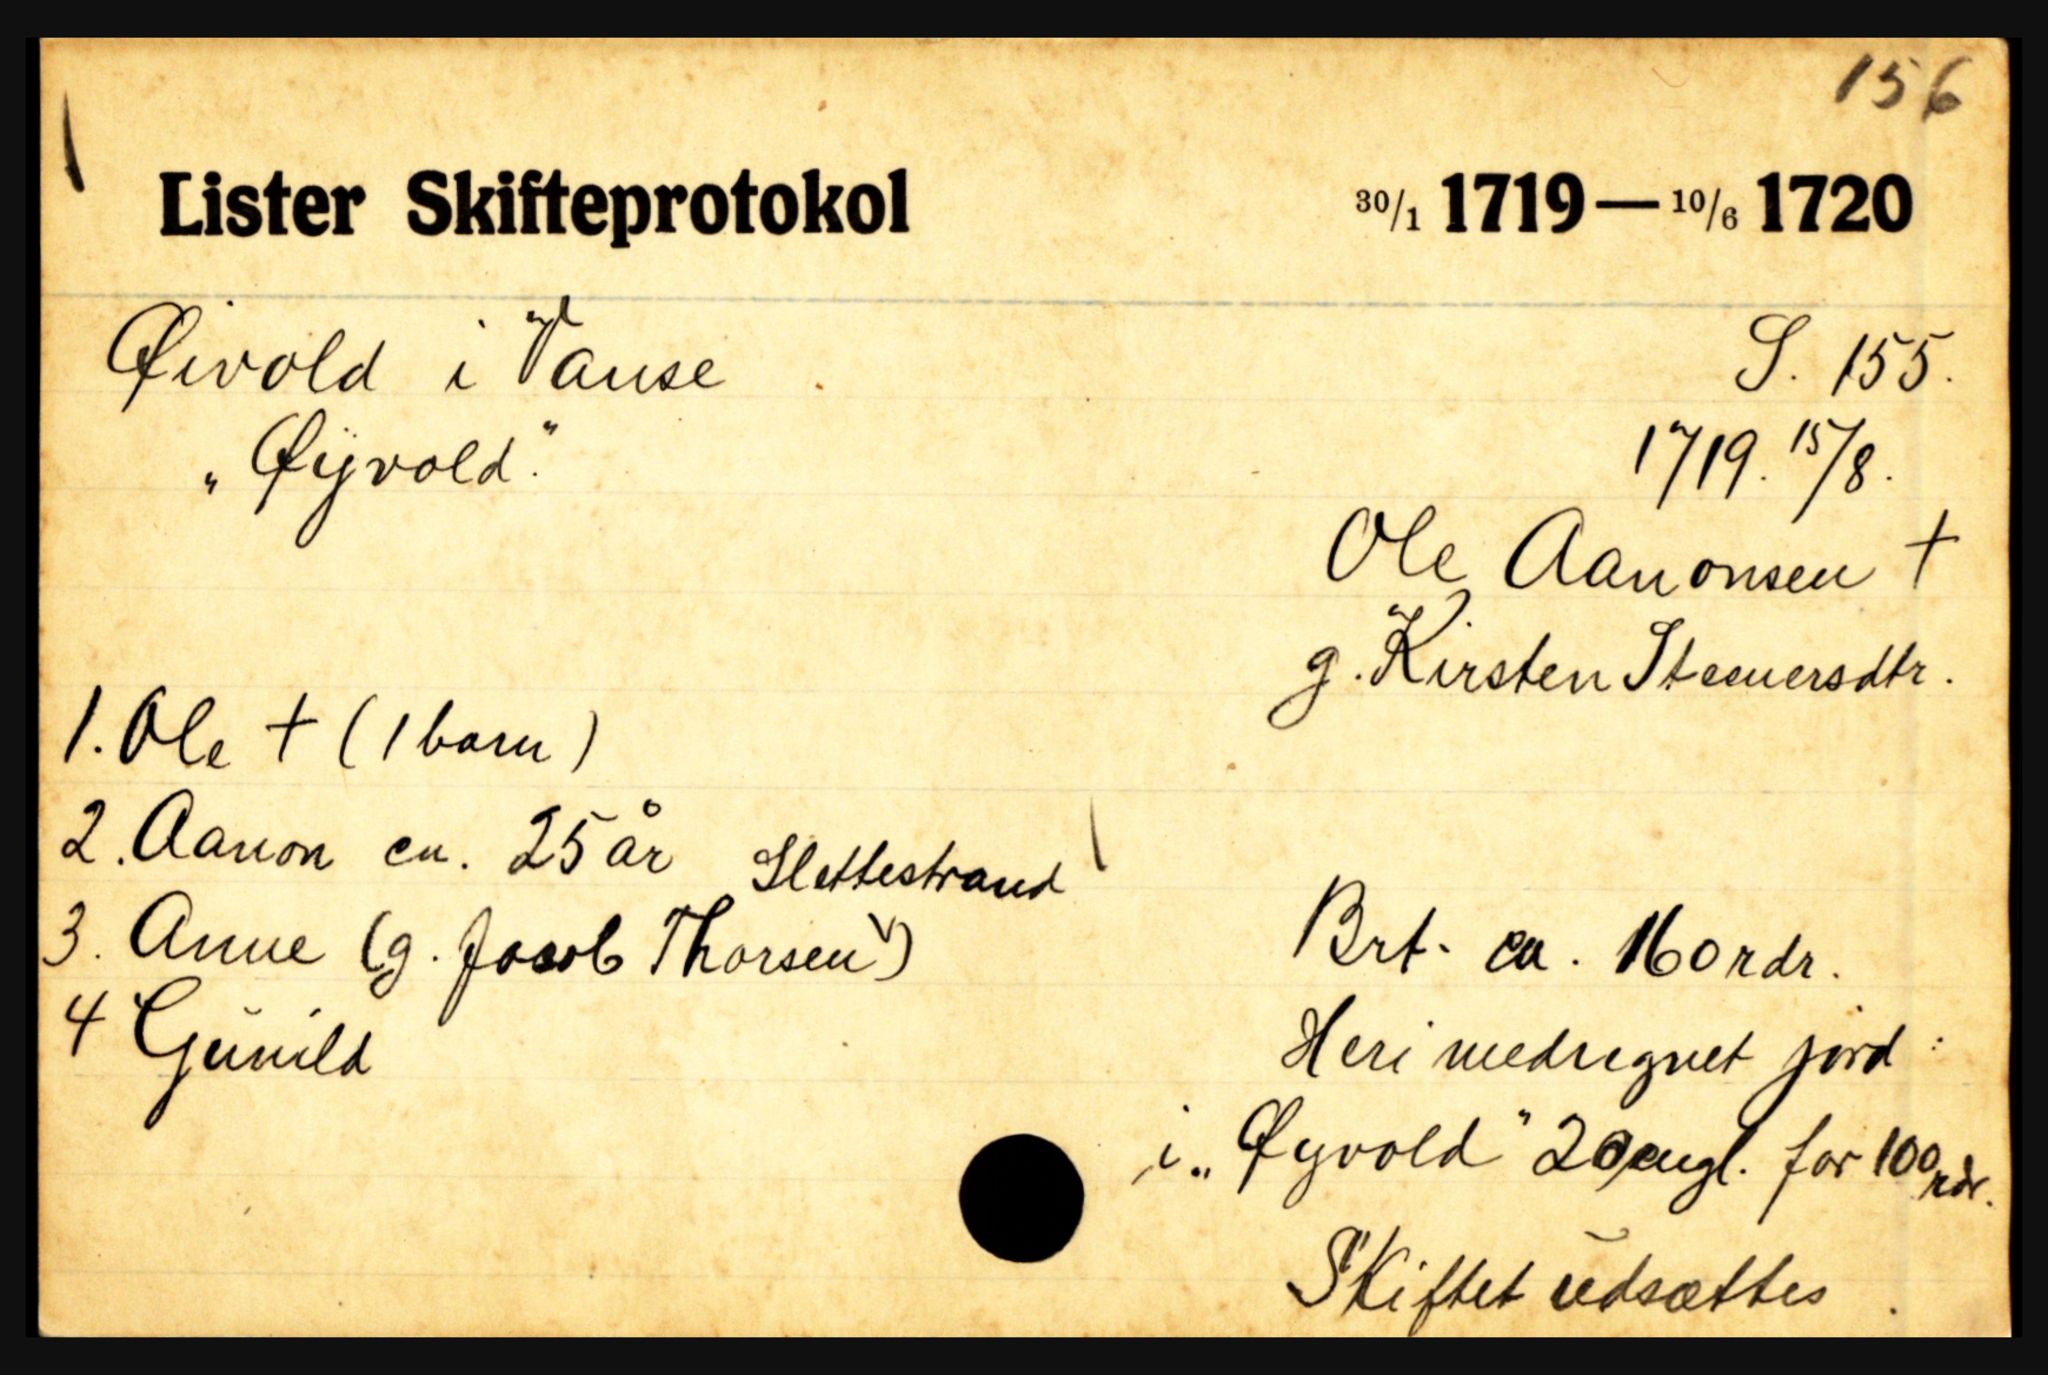 156
Lister Skifteprotokol 30/1 1719 — 10/6 1720
Øivold i Vanse S. 155.
„Øijvold". 1719. 15/8.
Ole Aanonsen †
g. Kirsten Steenersdtr.
1. Ole † (1 barn)
2. Aanon ca. 25 år Slettestrand
3. Anne (g. Jacob Thorsen)
4 Gŭnild
Brt. ca. 160 rdr.
Heri medregnet jord:
i „Øyvold" 2 engl. for 100 rdr.
Skiftet ŭdsættes.